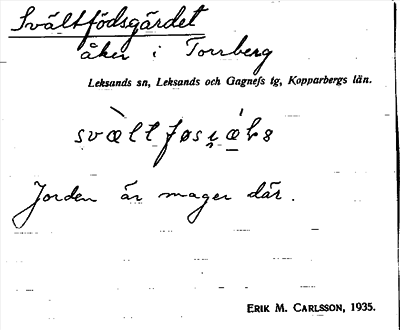 Svältfödsgärdet
åker i Torrberg
Leksands sn, Leksands och Gagnefs tg, Kopparbergs län.
Jorden är mager där.
ERIK M. CARLSSON, 1935.